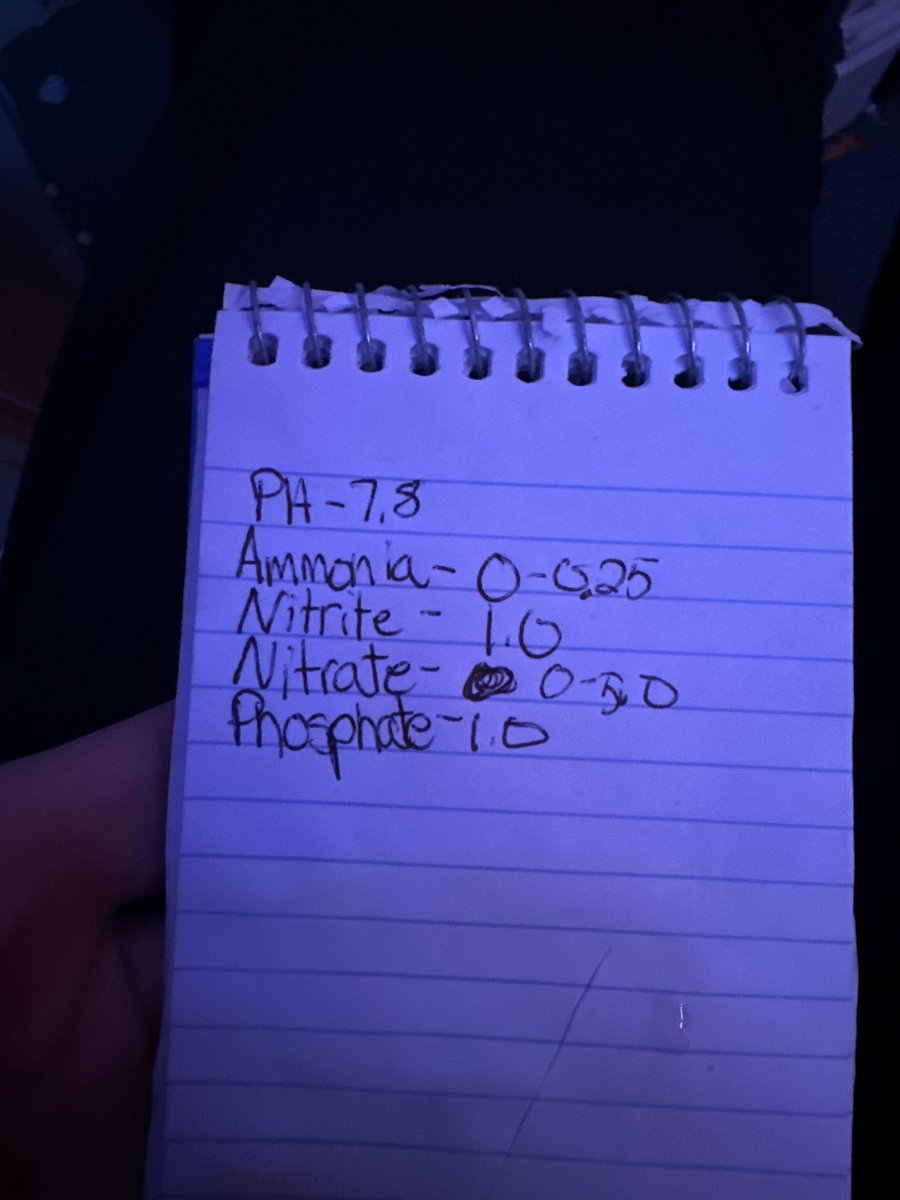 PH-7.8
Ammonia- 0-0.25
Nitrite - 1.0
Nitrate- 0-5.0
Phosphate-1.0